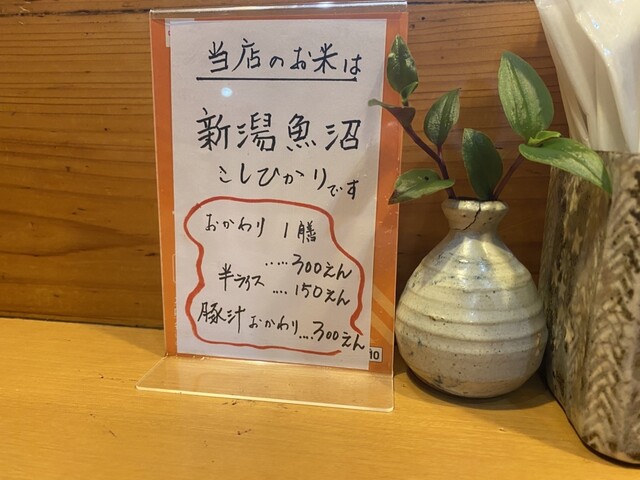 当店のお米は
新潟魚沼
こしひかりです
おかわり 1膳
.....300えん
半ライス .... 150えん
豚汁おかわり....300えん
10